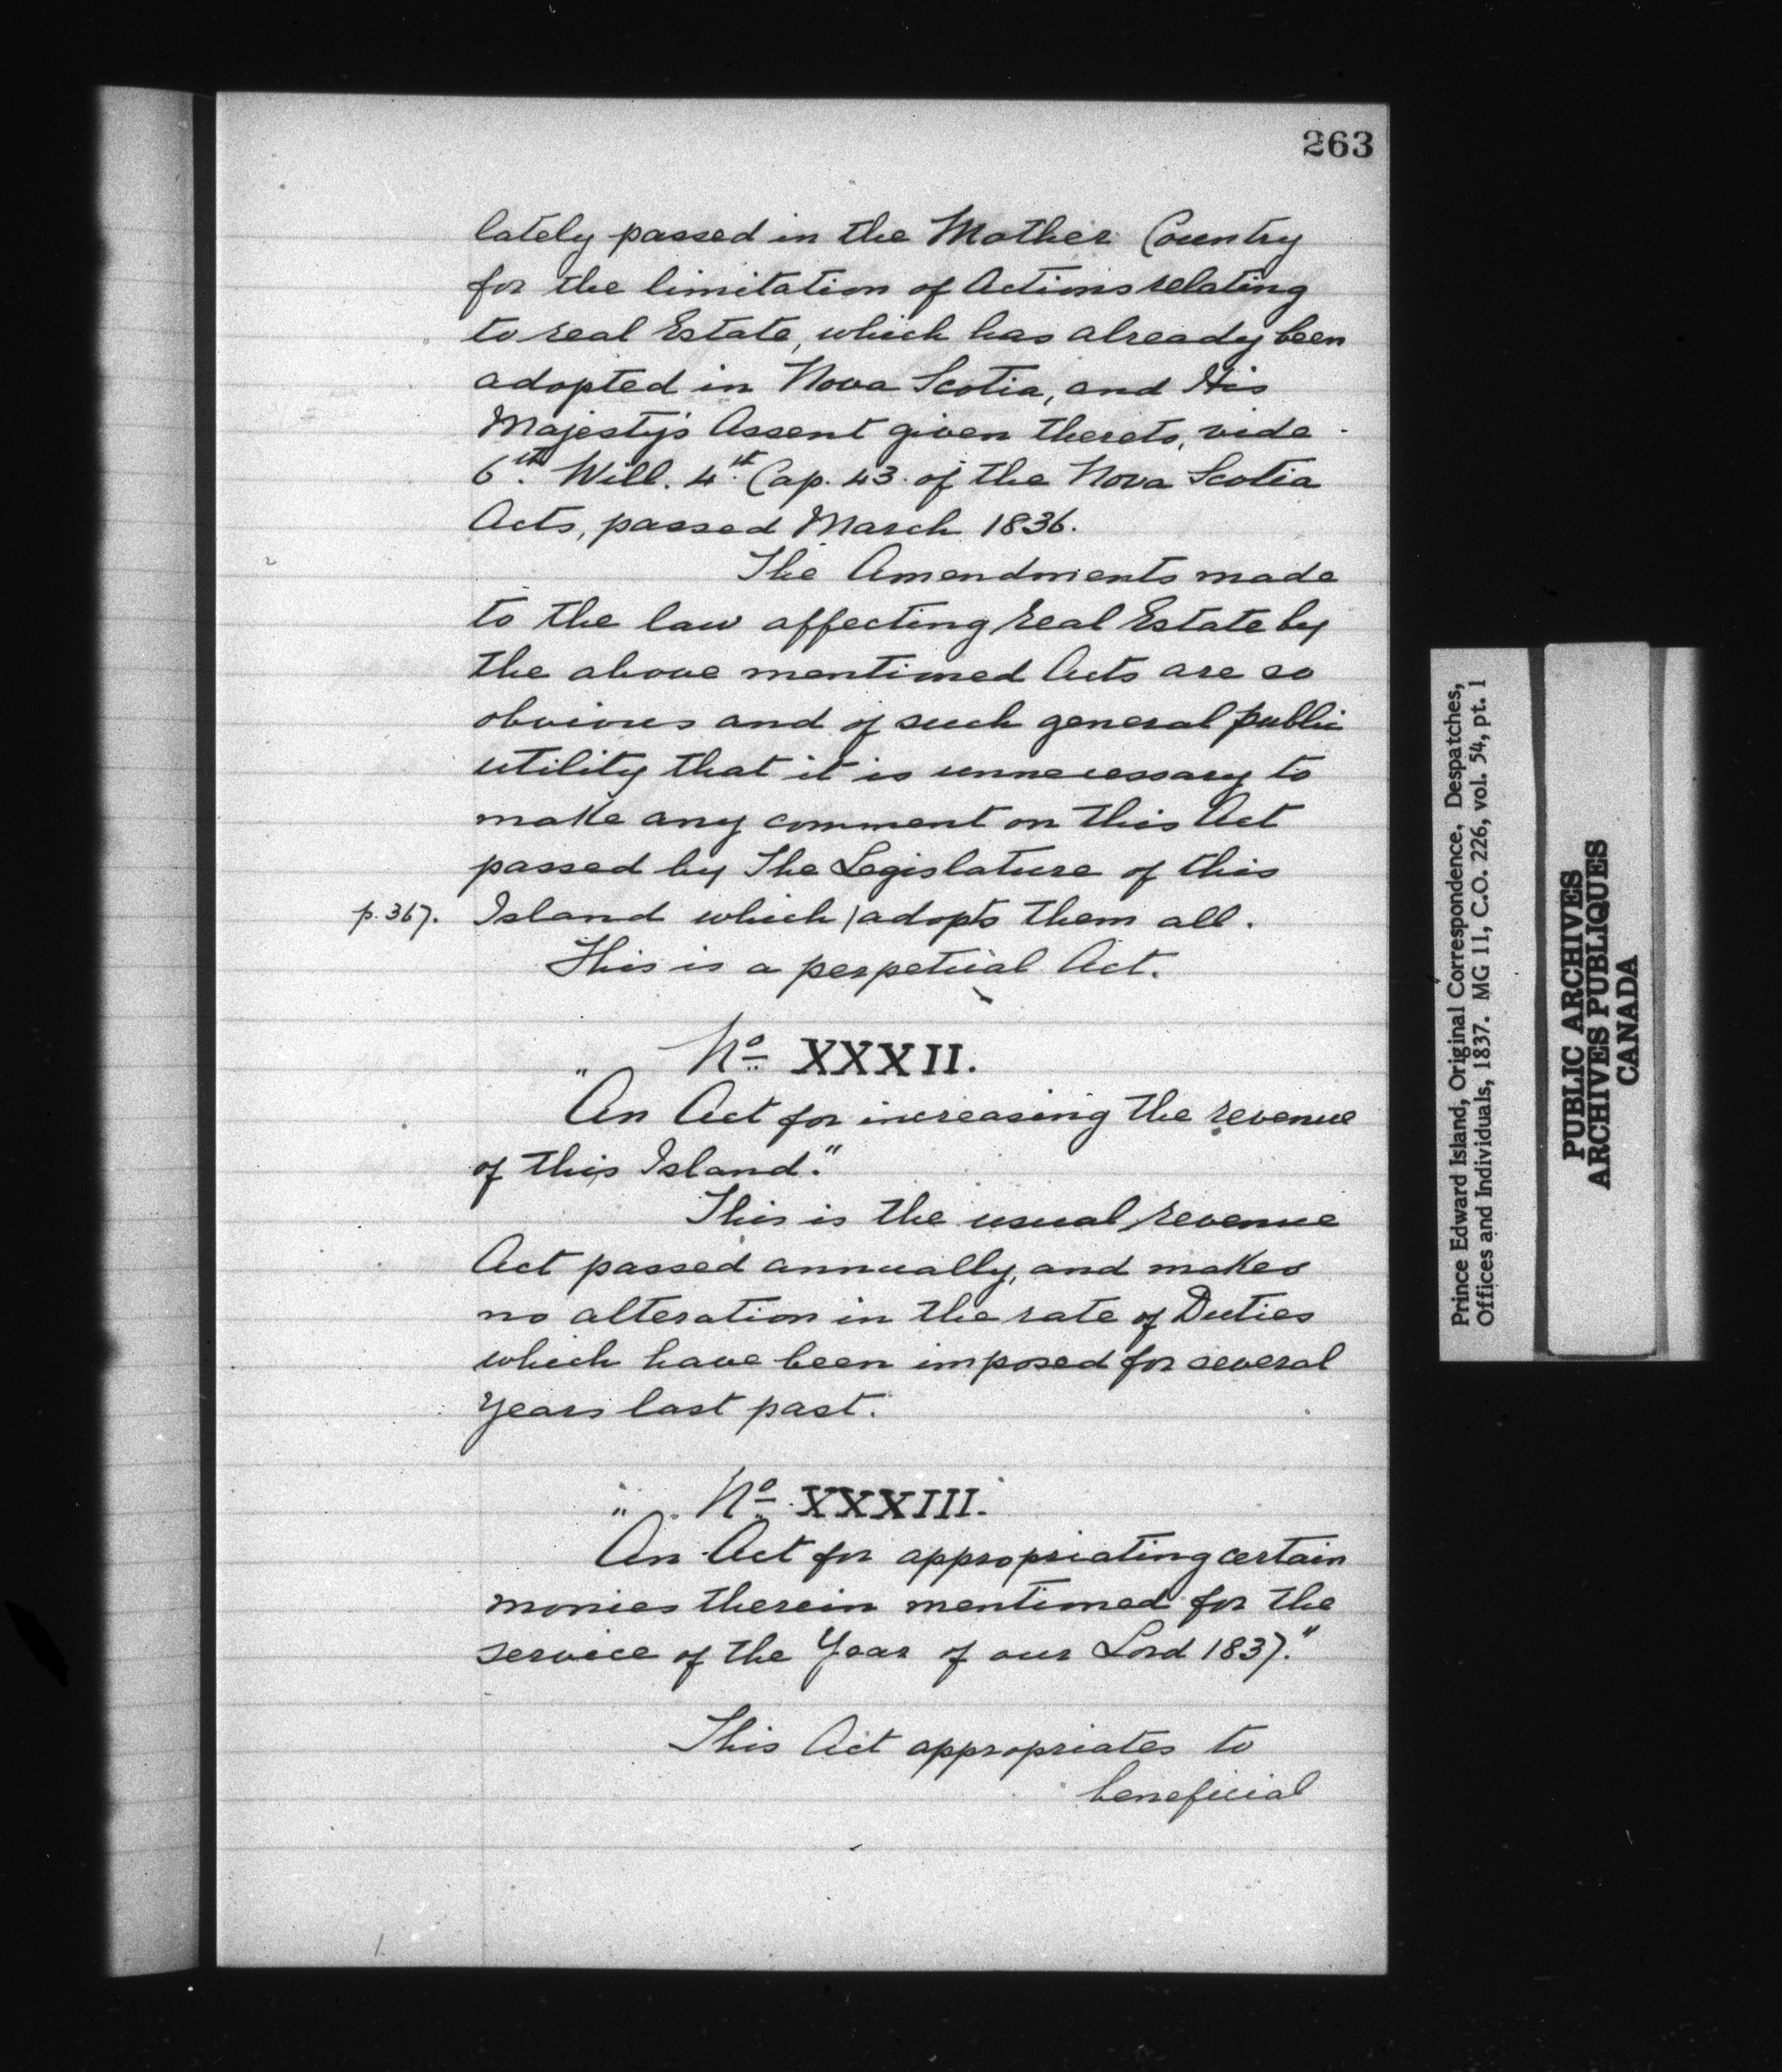 263
lately passed in the Mother Country
for the limitation of Actions relating
to real Estate, which has already been
adopted in Nova Scotia, and His
Majesty's Assent given thereto, vide
6th. Will. 4th. Cap. 43. of the Nova Scotia
Acts, passed March 1836.
The Amendments made
to the law affecting real Estate by
the above mentioned Acts are so
obvious and of such general public
utility that it is unnecessary to
make any comment on this Act
passed by The Legislature of this
p. 367. Island which | adopts them all.
This is a perpetual Act.
No XXXII.
"An Act for increasing the revenue
of this Island."
This is the usual revenue
Act passed annually, and makes
no alteration in the rate of Duties
which have been imposed for several
years last past.
No XXXIII.
"An Act for appropriating certain
monies therein mentioned for the
service of the Year of our Lord 1837."
This Act appropriates to
beneficial
Prince Edward Island, Original Correspondence. Despatches,
Offices and Individuals, 1837. MG 11, C.O. 226, vol. 54, pt. 1
PUBLIC ARCHIVES
ARCHIVES PUBLIQUES
CANADA